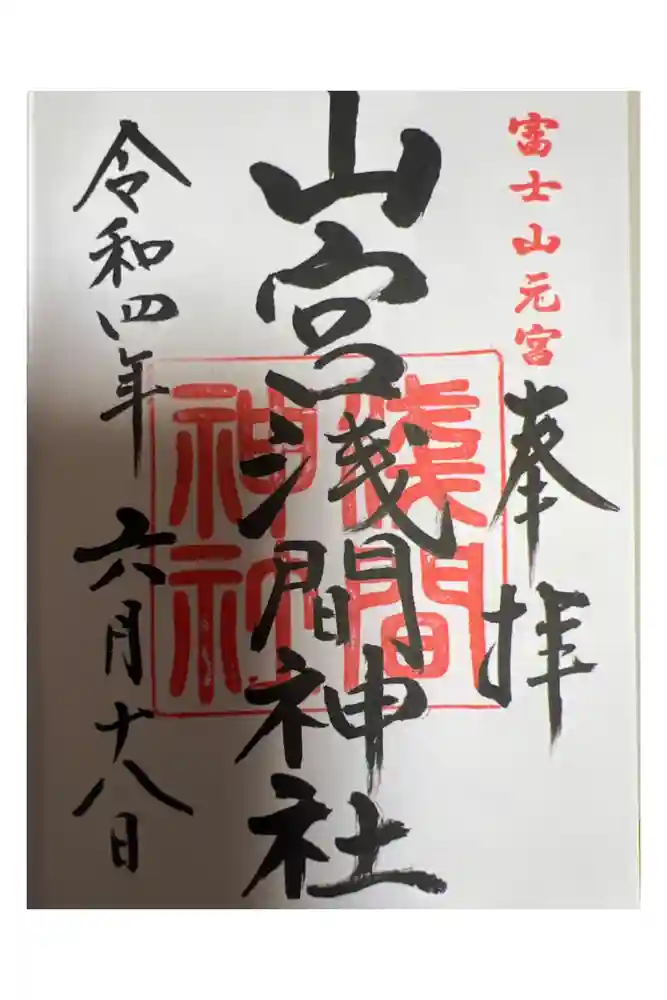 富士山元宮
奉拝
山宮浅間神社
浅間
神社
令和四年六月十八日